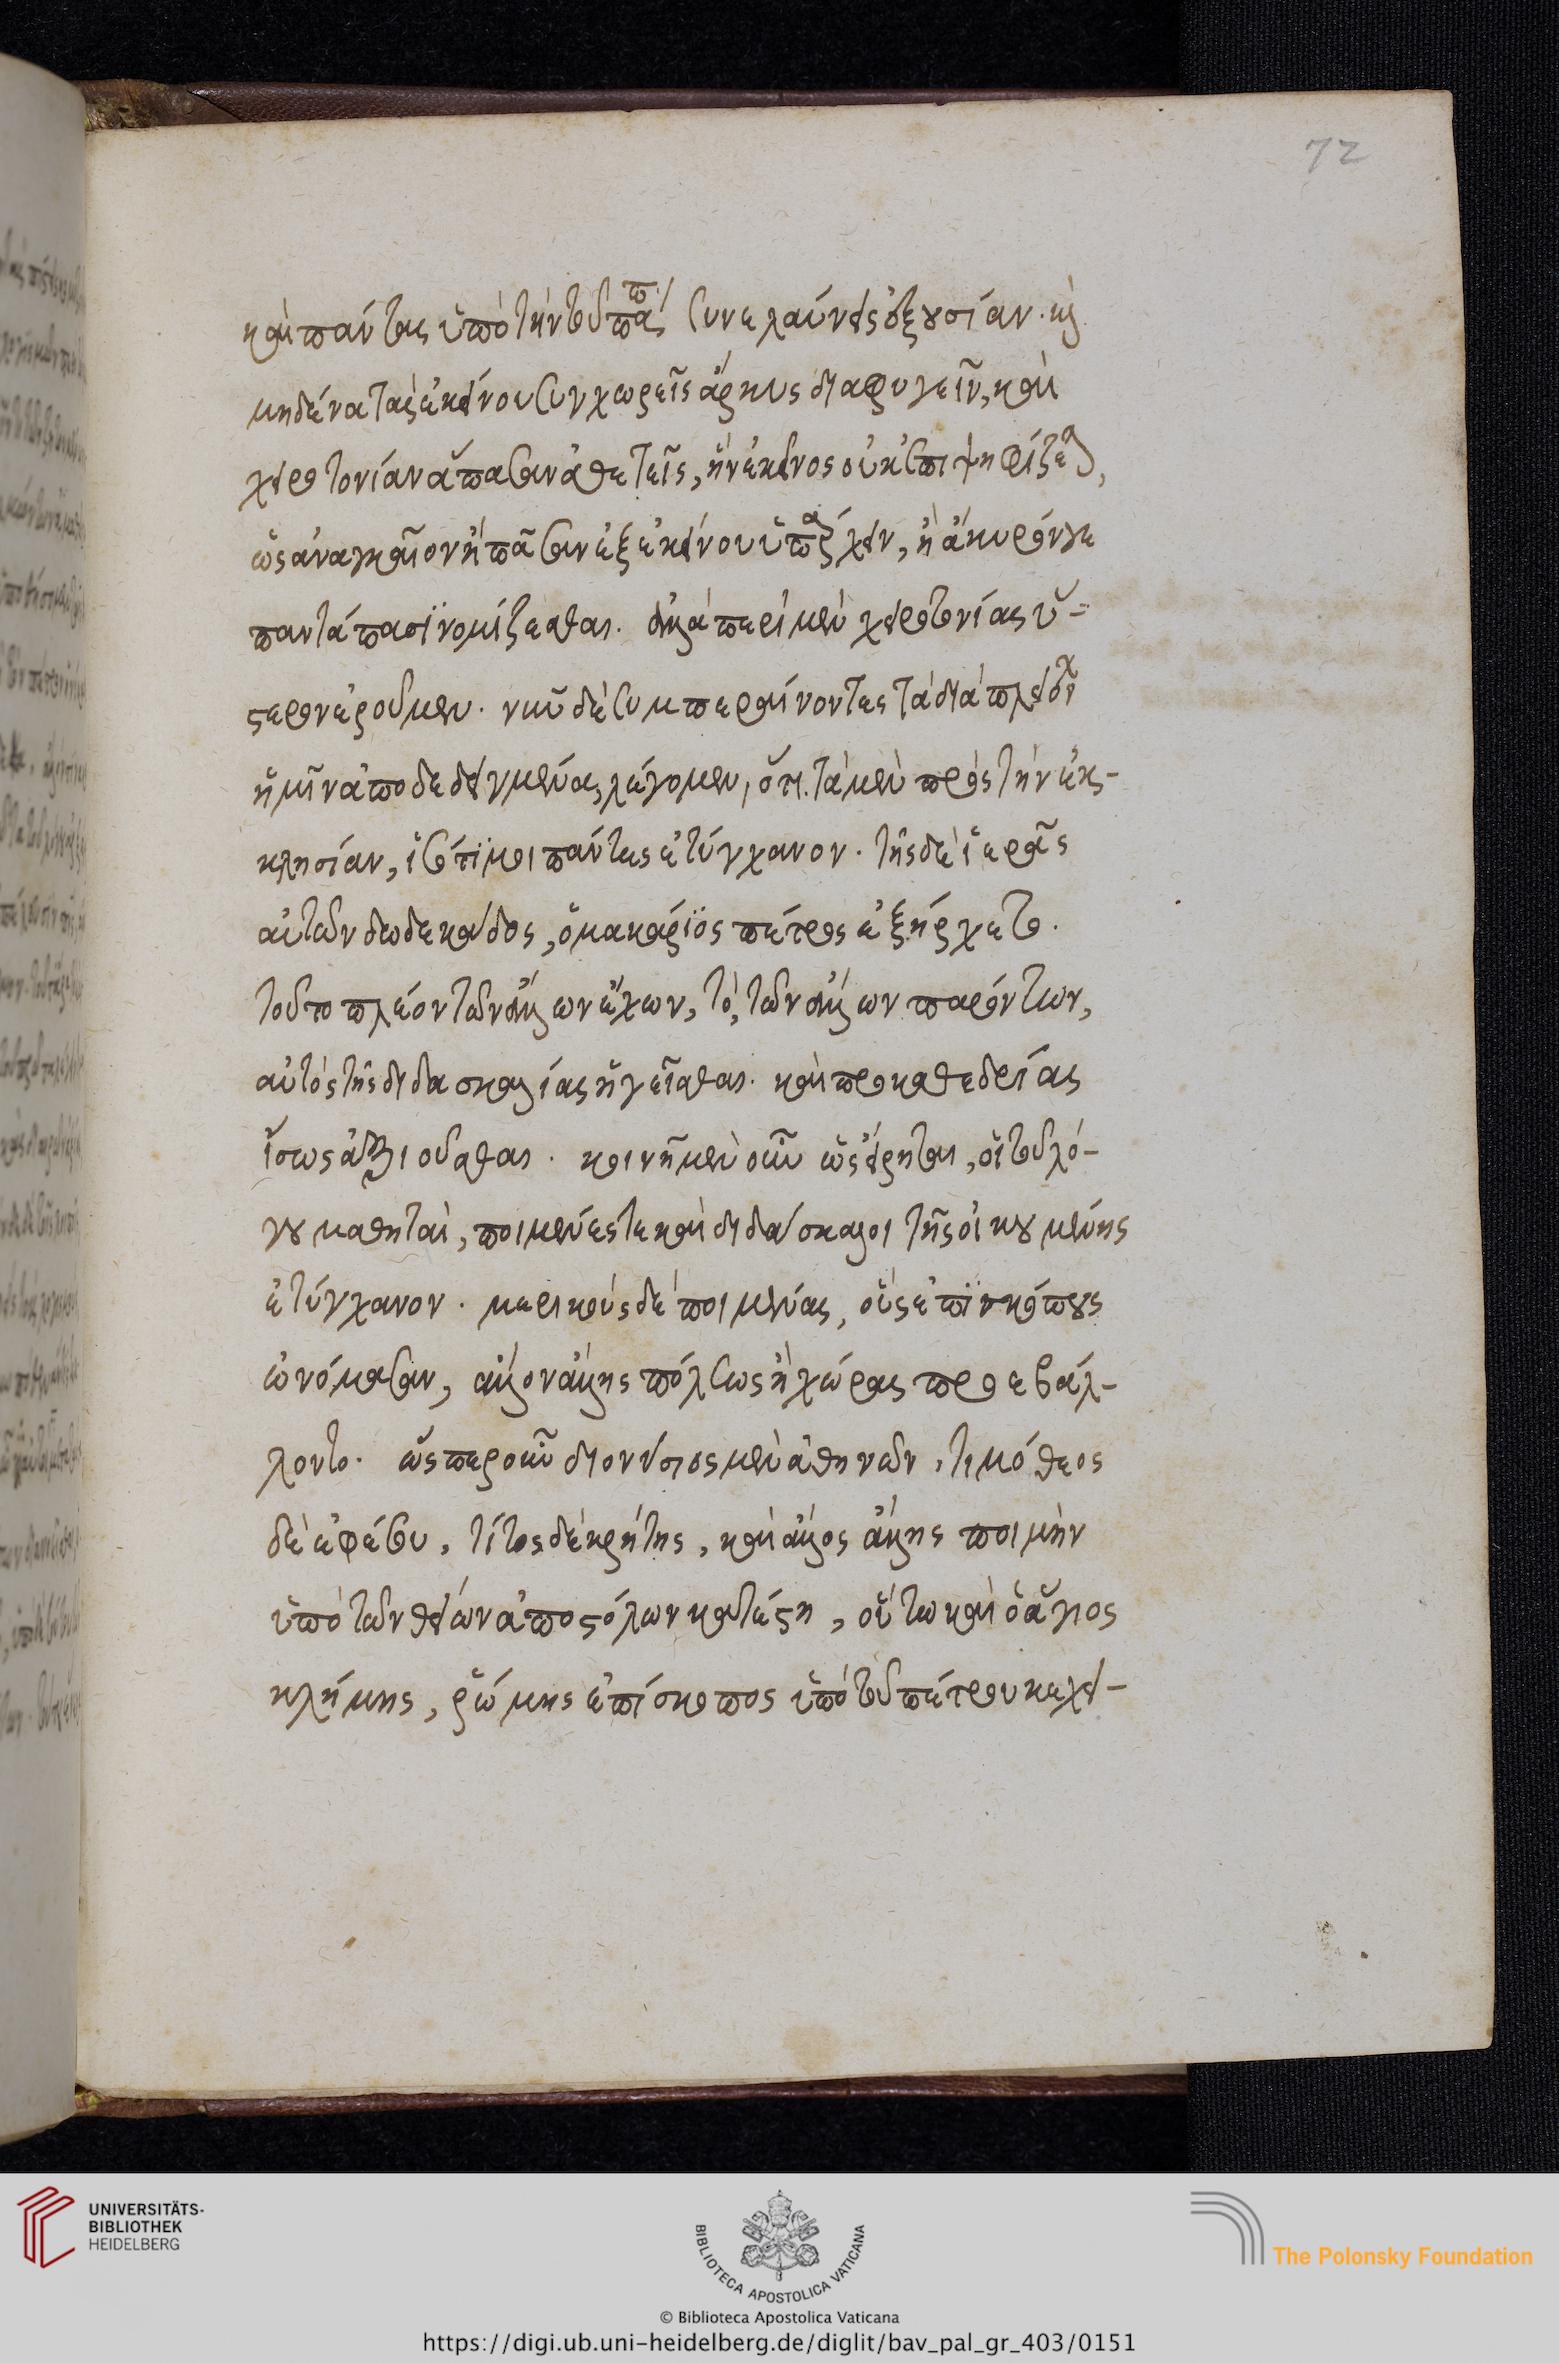 72
καὶ πάντας ὑπὸ τὴν τοῦ πάππ συνελαύνεις ἐξουσίαν. καὶ
μηδένα τὰς ἐκείνου συγχωρεῖς ἄρκυς διαφυγεῖν, καὶ
χειροτονίαν ἅπασιν ἀθετεῖς, ἣν ἐκεῖνος οὐκ ἐπιψηφίζεται,
ὡς ἀναγκαῖον ἢ πᾶσιν ἐξ ἐκείνου ὑπάρχειν, ἢ ἄκυρόν γε
παντάπασι νομίζεσθαι. ἀλλὰ περὶ μὲν χειροτονίας ὕ-
στερον ἐροῦμεν. νῦν δὲ συμπεραίνοντες τὰ διὰ πλειόνων
ἡμῖν ἀποδεδειγμένα, λέγομεν, ὅτι τὰ μὲν πρὸς τὴν ἐκ-
κλησίαν, ἰσότιμοι πάντες ἐτύγχανον. τῆς δὲ ἱερᾶς
αὐτῶν δωδεκάδος, ὁ μακάριος πέτρος ἐξήρχετο.
τοῦτο πλέον τῶν ἄλλων ἔχων, τὸ, τῶν ἄλλων παρόντων,
αὐτὸς τῆς διδασκαλίας ἡγεῖσθαι. καὶ προκαθεδρίας
ἴσως ἀξιοῦσθαι. κοινῇ μὲν οὖν ὡς εἴρηται, οἱ τοῦ λό-
γου μαθηταὶ, ποιμένες τε καὶ διδάσκαλοι τῆς οἰκουμένης
ἐτύγχανον. μερικοὺς δὲ ποιμένας, οὓς ἐπισκόπους
ὠνόμασαν, ἄλλον ἄλλης πόλεως ἢ χώρας προεβάλ-
λοντο. ὥσπερ οὖν διονύσιος μὲν ἀθηνῶν, τιμόθεος
δὲ ἐφέσου, τίτος δὲ κρήτης, καὶ ἄλλος ἄλλης ποιμὴν
ὑπὸ τῶν θείων ἀποστόλων κατέστη, οὕτω καὶ ὁ ἅγιος
κλήμης, ῥώμης ἐπίσκοπος ὑπὸ τοῦ πέτρου κεχει-
UNIVERSITÄTS-
BIBLIOTHEK
HEIDELBERG
BIBLIOTECA APOSTOLICA VATICANA
The Polonsky Foundation
© Biblioteca Apostolica Vaticana
https://digi.ub.uni-heidelberg.de/diglit/bav_pal_gr_403/0151